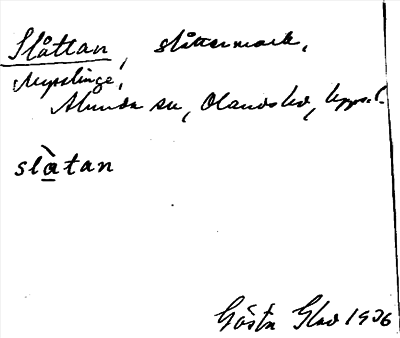 Slåttan, slåttermark,
Mysslinge,
Alunda sn, Olands hd, Uppsl.
slàtan
Gösta Glad 1936